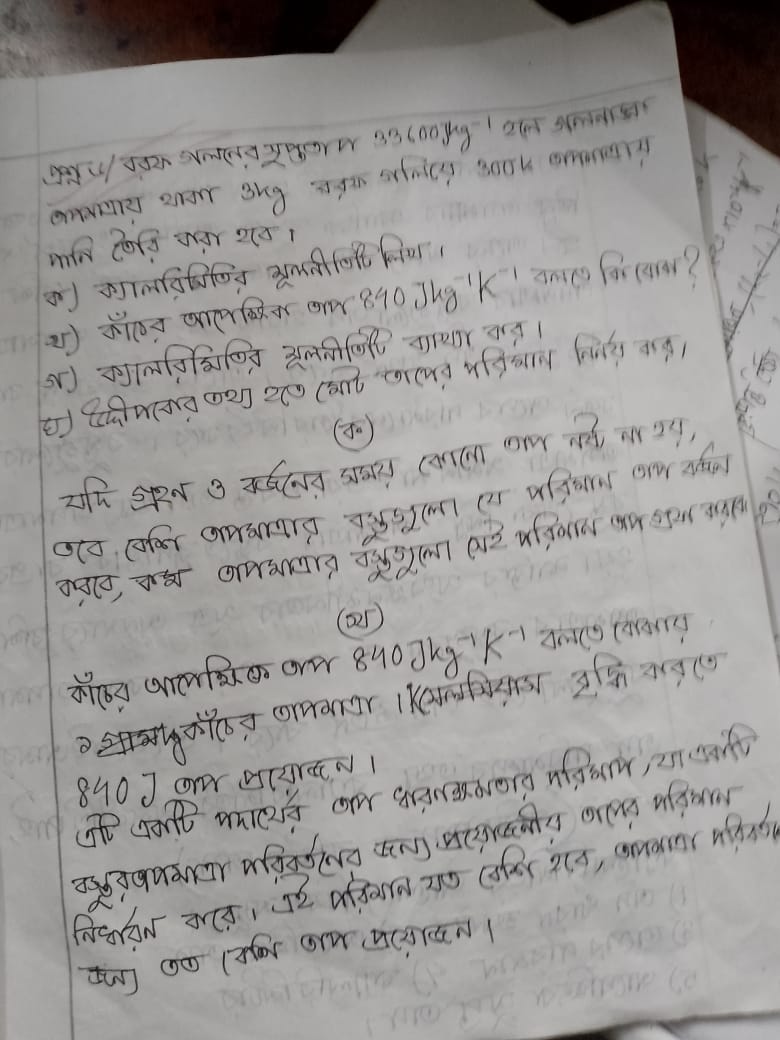 প্রশ্ন ৬/ বরফ গলনের সুপ্ততাপ 33600Jkg⁻¹ হলে গলনাঙ্ক
তাপমাত্রায় থাকা 3kg বরফ গলিয়ে 300K তাপমাত্রায়
পানি তৈরি করা হবে।
ক) ক্যালরিমিতির মূলনীতিটি লিখ।
খ) কাঁচের আপেক্ষিক তাপ 840 Jkg⁻¹K⁻¹ বলতে কি বোঝ?
গ) ক্যালরিমিতির মূলনীতিটি ব্যাখ্যা কর।
ঘ) উদ্দীপকের তথ্য হতে মোট তাপের পরিমান নির্নয় কর।
(ক)
যদি গ্রহন ও বর্জনের সময় কোনো তাপ নষ্ট না হয়,
তবে বেশি তাপমাত্রার বস্তুগুলো যে পরিমান তাপ বর্জন
করবে, কম তাপমাত্রার বস্তুগুলো সেই পরিমান তাপ গ্রহন করবে
(খ)
কাঁচের আপেক্ষিক তাপ 840 Jkg⁻¹K⁻¹ বলতে বোঝায়
কাঁচের তাপমাত্রা 1K সেলসিয়াস বৃদ্ধি করতে
840 J তাপ প্রয়োজন।
এটি একটি পদার্থের তাপ ধারনক্ষমতার পরিমাপ, যা একটি
বস্তুর তাপমাত্রা পরিবর্তনের জন্য প্রয়োজনীয় তাপের পরিমান
নির্ধারন করে। এই পরিমান যত বেশি হবে, তাপমাত্রা পরিবর্তনের
জন্য তত বেশি তাপ প্রয়োজন।